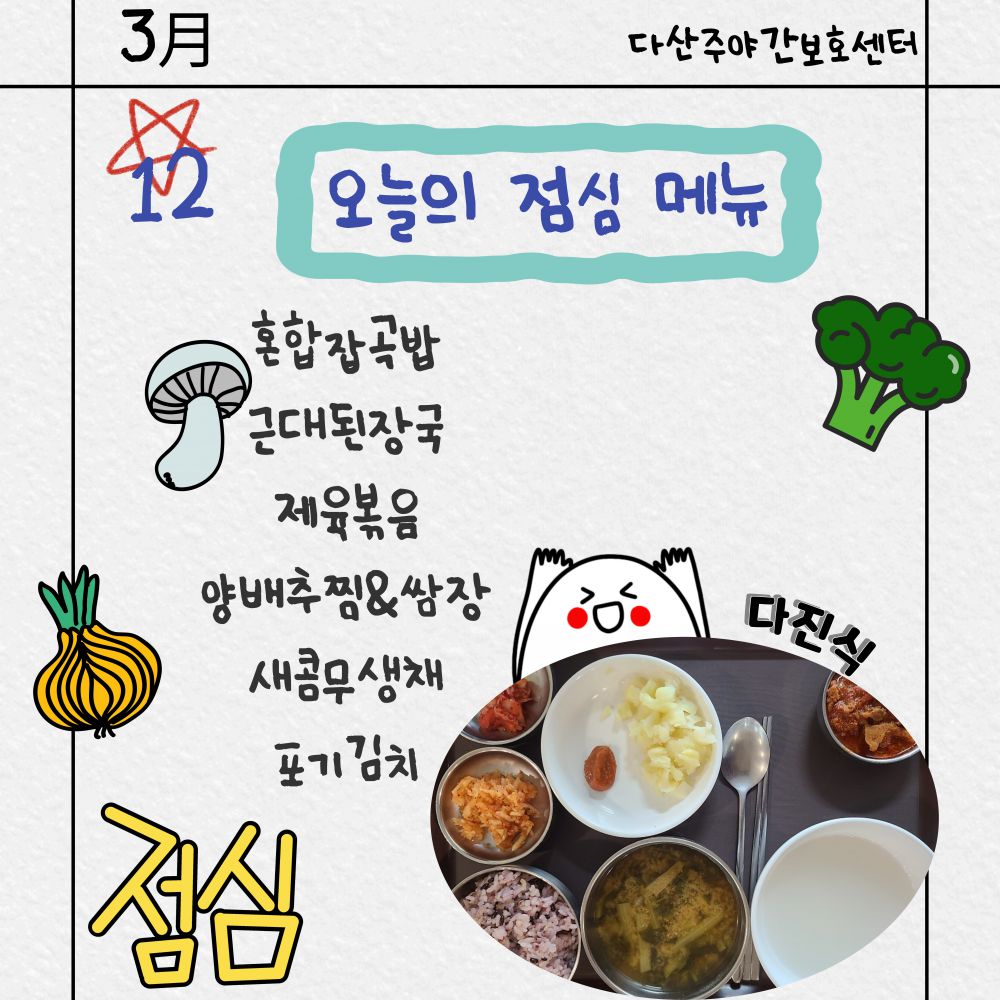 3月
다산주야간보호센터
12
오늘의 점심 메뉴
혼합잡곡밥
근대된장국
제육볶음
양배추찜&쌈장
새콤무생채
포기김치
다진식
점심